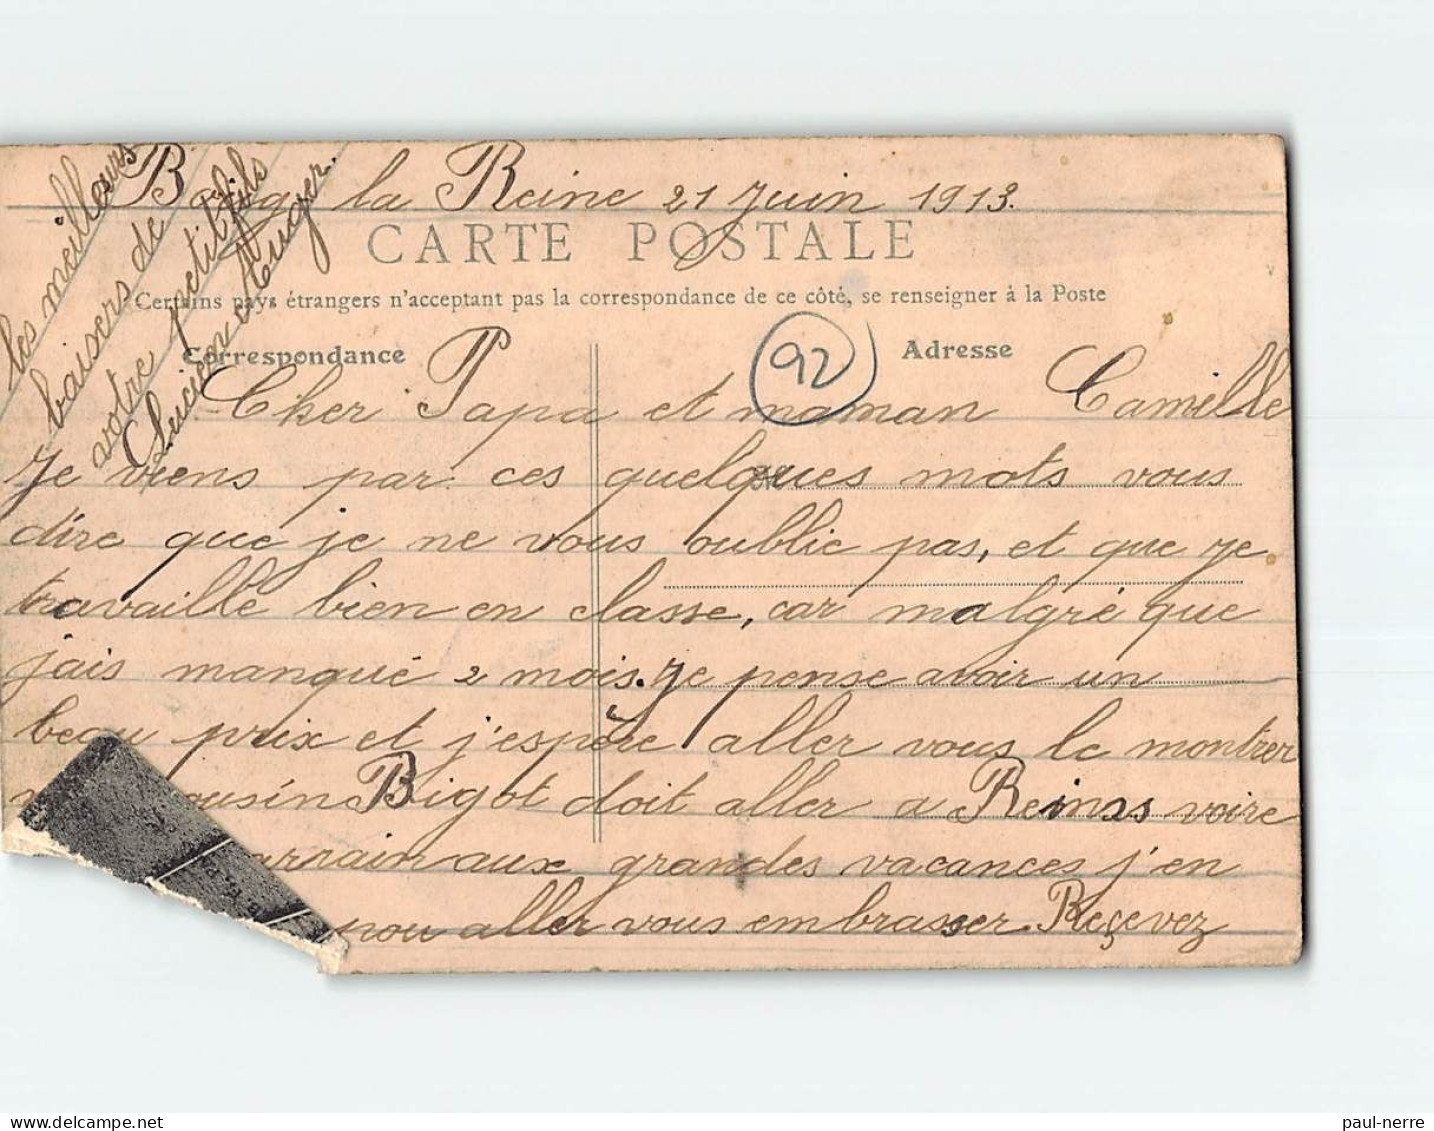 Bourg la Reine 21 Juin 1913.
CARTE POSTALE
Certains pays étrangers n'acceptant pas la correspondance de ce côté, se renseigner à la Poste
Correspondance
Adresse
92
Cher Papa et maman Camille
Je viens par ces quelques mots vous
dire que je ne vous oublie pas, et que je
travaille bien en classe, car malgré que
jais manqué 2 mois. Je pense avoir un
beau prix et j'espère aller vous le montrer
cousin Bigot doit aller a Reims voire
parrain aux grandes vacances j'en
aller vous embrasser. Reçevez
les meilleurs
baisers de
votre petit fils
Lucien Auger.
paul-nerre